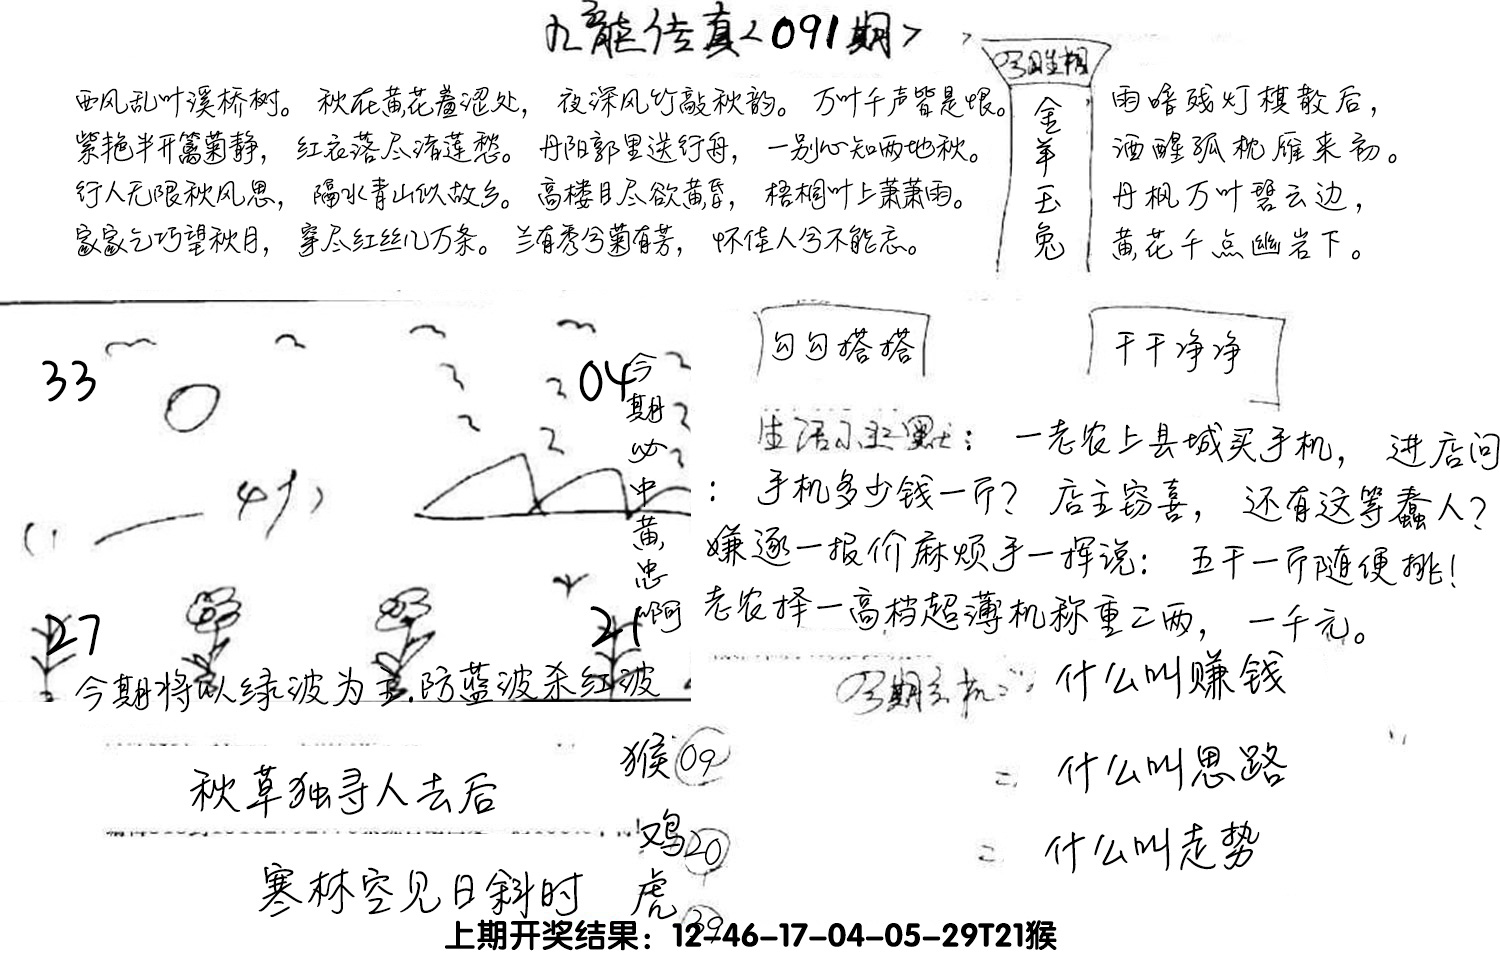 九龙传真<091期>
西风乱叶溪桥树。 秋在黄花羞涩处, 夜深风竹敲秋韵。 万叶千声皆是恨。
紫艳半开篱菊静, 红衣落尽渚莲愁。 丹阳郭里送行舟, 一别心知两地秋。
行人无限秋风思, 隔水青山似故乡。 高楼目尽欲黄昏, 梧桐叶上萧萧雨。
家家乞巧望秋月, 穿尽红丝几万条。 兰有秀兮菊有芳, 怀佳人兮不能忘。
金羊玉兔
雨暗残灯棋散后,
酒醒孤枕雁来初。
丹枫万叶碧云边,
黄花千点幽岩下。
33
04
27
21
今期必中黄忠啊
今期将以绿波为主.防蓝波杀红波
勾勾搭搭
干干净净
生活小幽默: 一老农上县城买手机, 进店问
: 手机多少钱一斤? 店主窃喜, 还有这等蠢人?
嫌逐一报价麻烦手一挥说: 五千一斤随便挑!
老农择一高档超薄机称重二两, 一千元。
今期玄机: 什么叫赚钱
= 什么叫思路
= 什么叫走势
秋草独寻人去后
寒林空见日斜时
猴 09
鸡 20
虎 39
上期开奖结果: 12-46-17-04-05-29T21猴